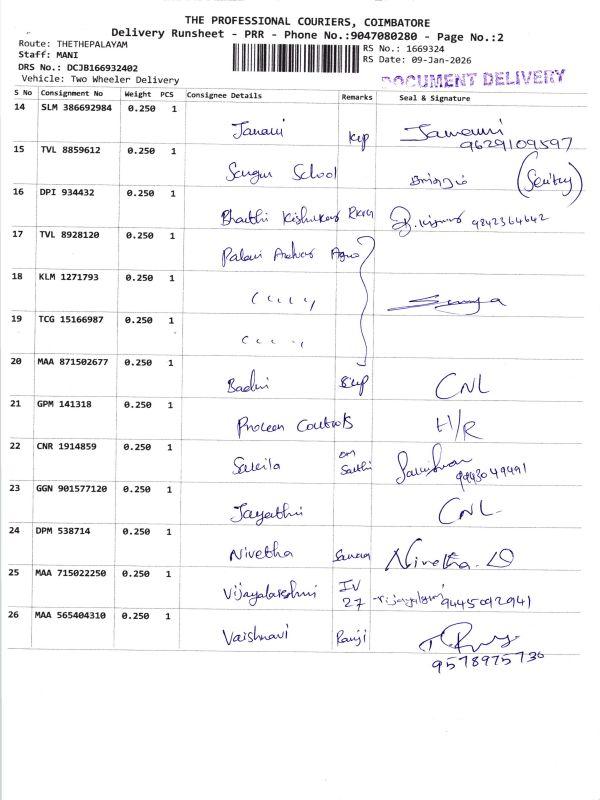 THE PROFESSIONAL COURIERS, COIMBATORE
Delivery Runsheet - PRR - Phone No.:9047080280 - Page No.:2
Route: THETHEPALAYAM
RS No.: 1669324
Staff: MANI
RS Date: 09-Jan-2026
DRS No.: DCJB166932402
DOCUMENT DELIVERY
Vehicle: Two Wheeler Delivery
S No Consignment No Weight PCS Consignee Details Remarks Seal & Signature
14 SLM 386692984 0.250 1
Janani
9629109597
15 TVL 8859612 0.250 1
School (Seuity)
16 DPI 934432 0.250 1
Bharthi Kishukars 9842364642
17 TVL 8928120 0.250 1
Palani Andvar Agro
18 KLM 1271793 0.250 1
19 TCG 15166987 0.250 1
20 MAA 871502677 0.250 1
Badhri CNL
21 GPM 141318 0.250 1
Controls H/R
22 CNR 1914859 0.250 1
Sakila 9443049491
23 GGN 901577120 0.250 1
Jayanthi CNL
24 DPM 538714 0.250 1
Nivetha Nivetha. D
25 MAA 715022250 0.250 1
Vijayalakshmi IV 27 9445092941
26 MAA 565404310 0.250 1
Vaishnavi Ranji
9578975736